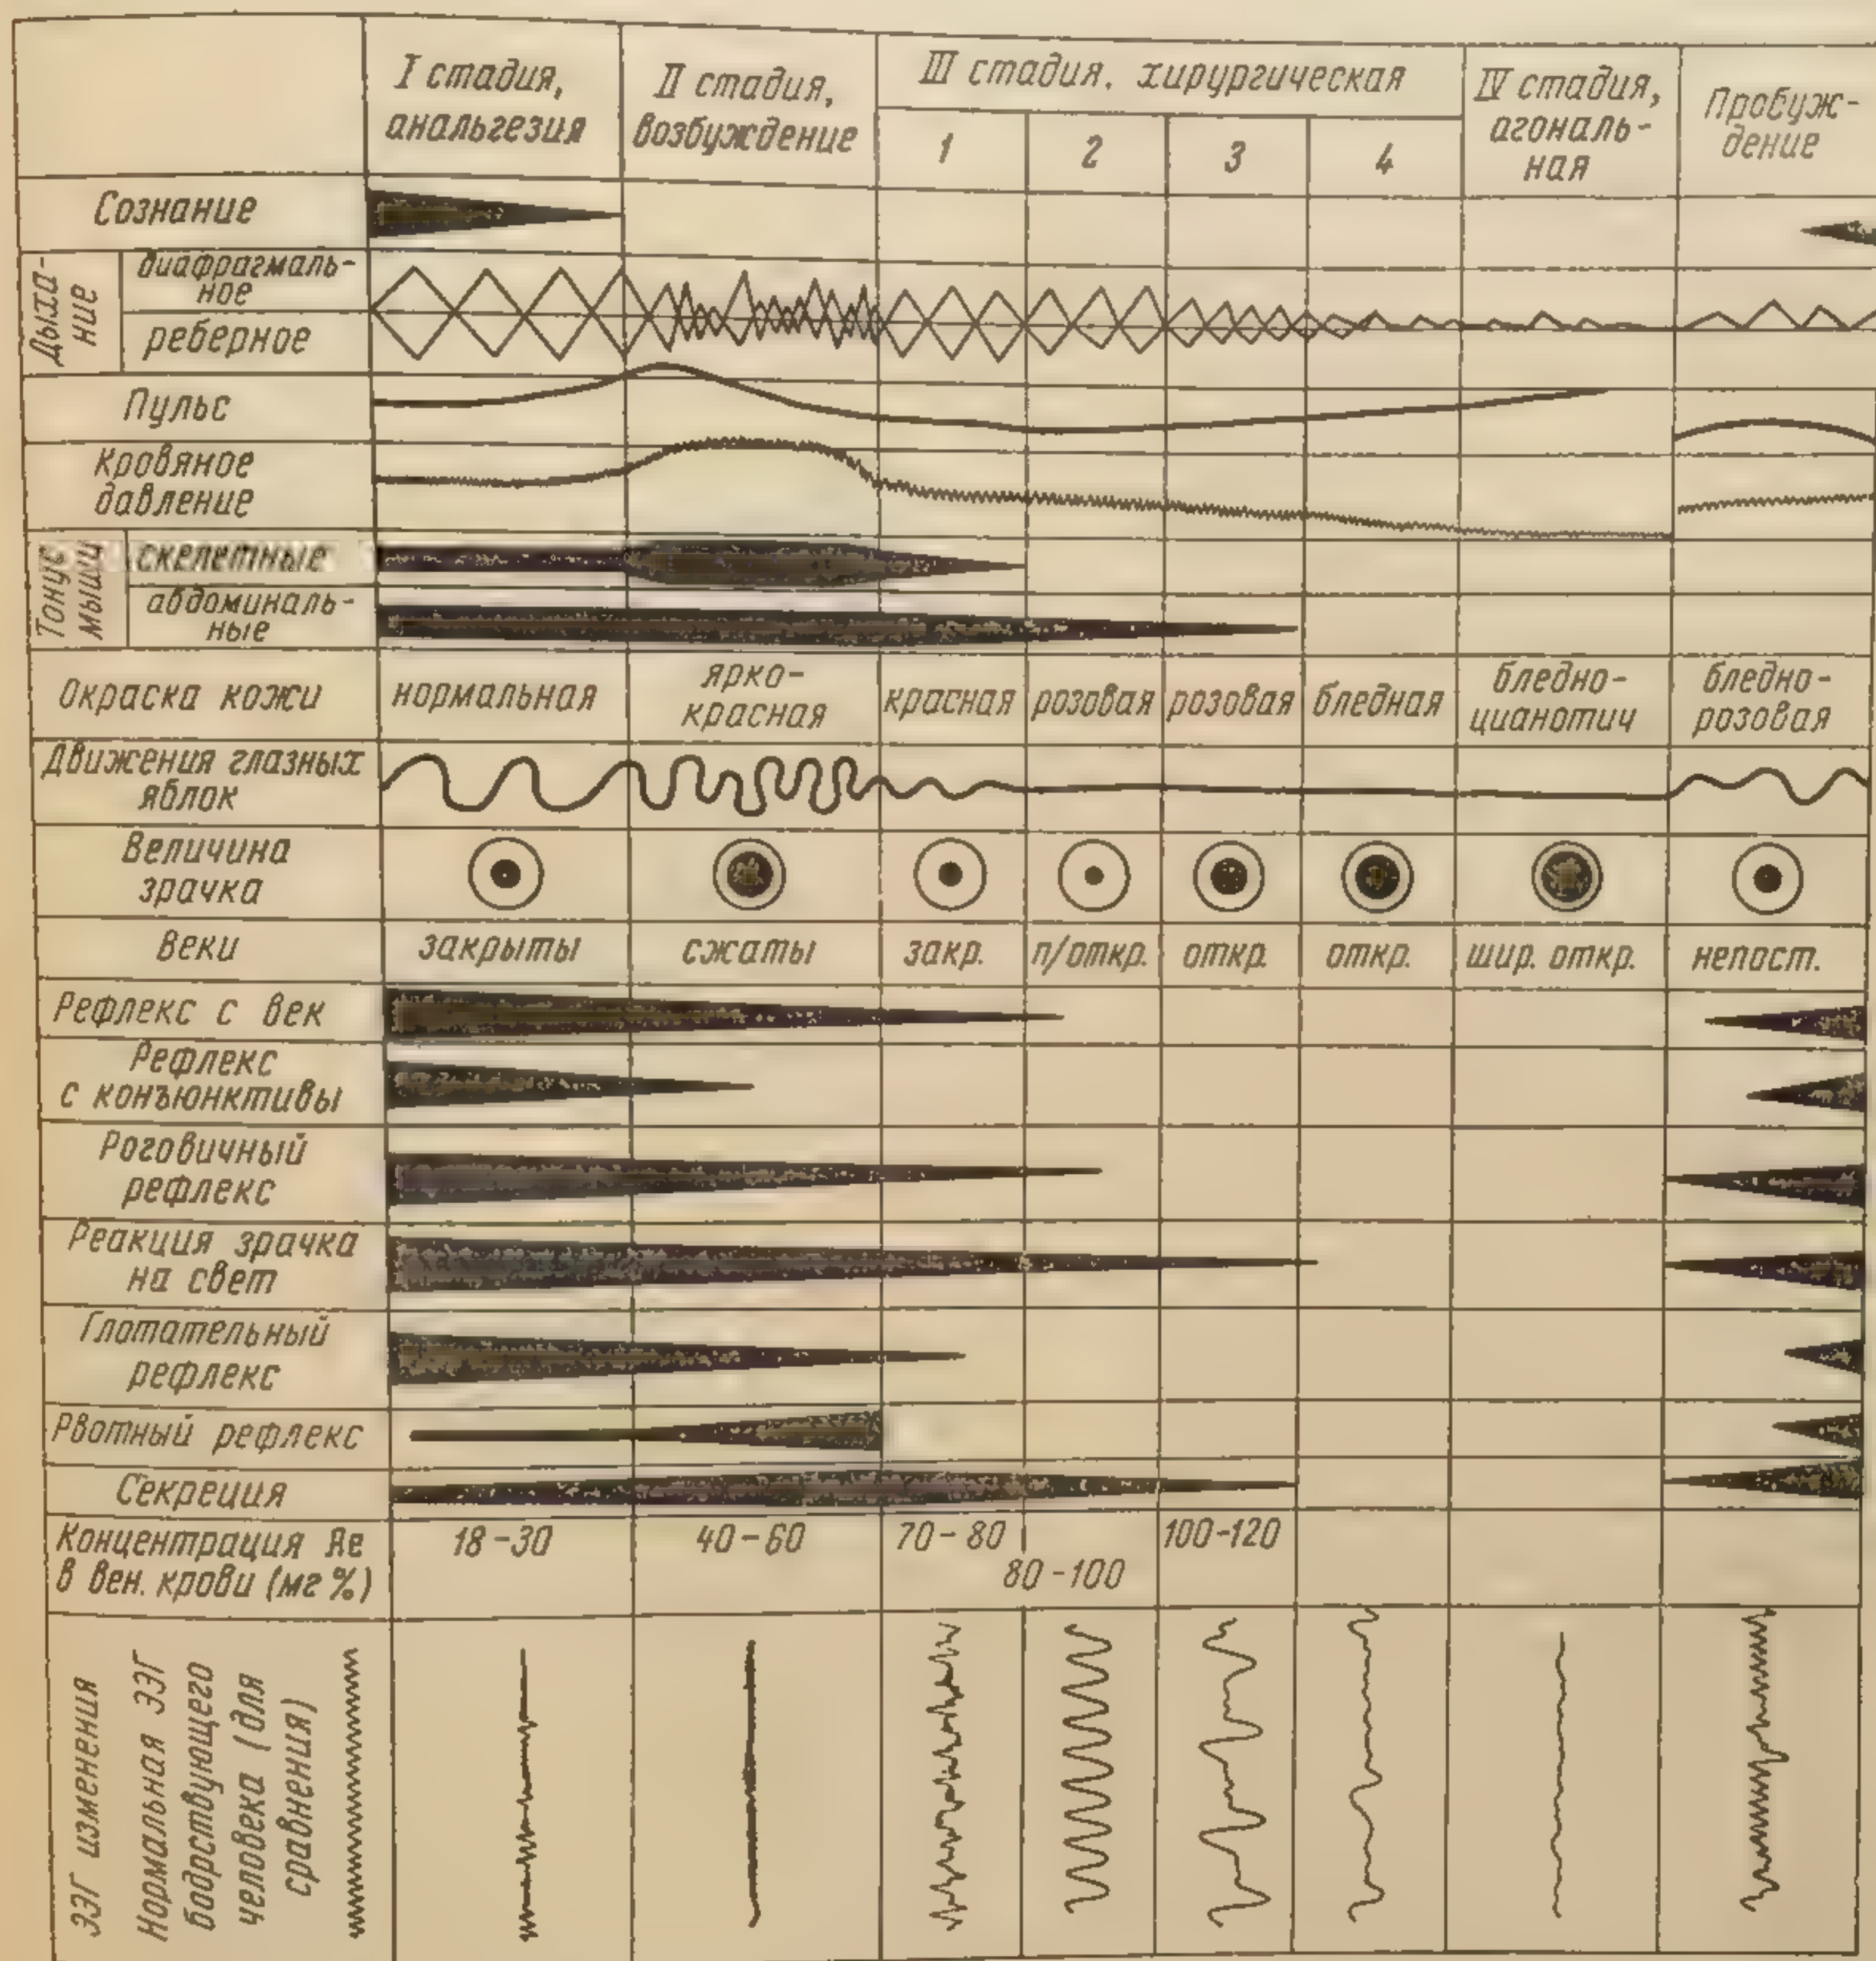 I стадия,
анальгезия
II стадия,
возбуждение
III стадия. хирургическая
1
2
3
4
IV стадия,
агональ-
ная
Пробуж-
дение
Сознание
Дыха-
ние
диафрагмаль-
ное
реберное
Пульс
Кровяное
давление
Тонус
мышц
скелетные
абдоминаль-
ные
Окраска кожи
нормальная
ярко-
красная
красная
розовая
розовая
бледная
бледно-
цианотич
бледно-
розовая
Движения глазных
яблок
Величина
зрачка
Веки
закрыты
сжаты
закр.
п/откр.
откр.
откр.
шир. откр.
непост.
Рефлекс с век
Рефлекс
с конъюнктивы
Роговичный
рефлекс
Реакция зрачка
на свет
Глотательный
рефлекс
Рвотный рефлекс
Секреция
Концентрация Ae
в вен. крови (мг %)
18-30
40-60
70-80
80-100
100-120
ЭЭГ изменения
Нормальная ЭЭГ
бодрствующего
человека (для
сравнения)